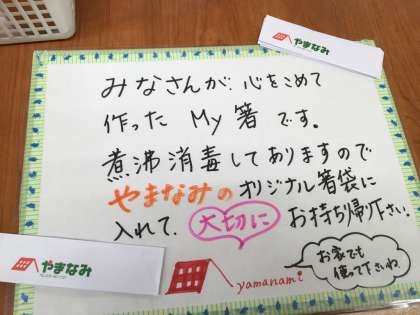 やまなみ
みなさんが、心をこめて
作った My 箸 です。
煮沸消毒してありますので
やまなみの オリジナル箸袋に
入れて、大切に お持ち帰り下さい。
やまなみ
yamanami
お家でも
使って下さいね